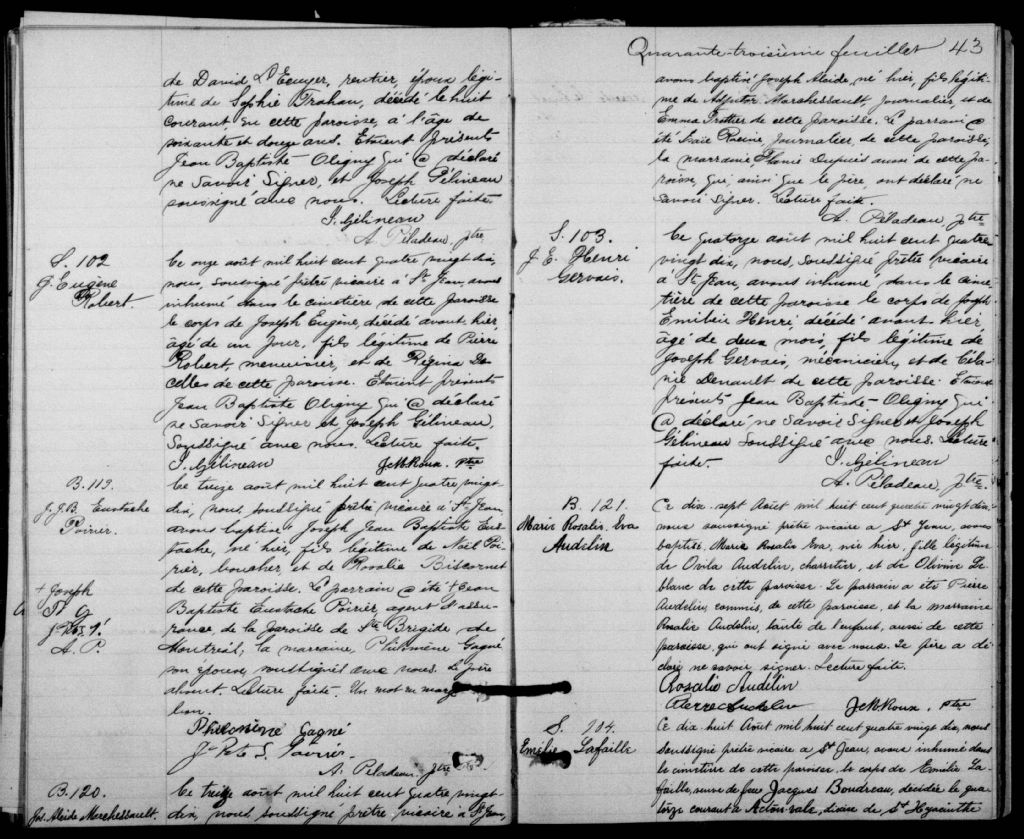 de David L'Ecuyer, rentier, époux légi-
time de Sophie Trahan, décédé le huit
courant en cette paroisse, à l'âge de
soixante et douze ans. Etaient présents
Jean Baptiste Oligny qui a déclaré
ne savoir signer, et Joseph Gélineau
soussigné avec nous. Lecture faite.
J. Gélineau
A. Péladeau, ptre
S. 102
J. Eugène
Robert.
Ce onze août mil huit cent quatre vingt dix,
nous, soussigné prêtre vicaire à St Jean, avons
inhumé dans le cimetière de cette paroisse
le corps de Joseph Eugène, décédé avant-hier,
âgé de un jour, fils légitime de Pierre
Robert, menuisier, et de Régina De
celles de cette paroisse. Etaient présents
Jean Baptiste Oligny qui a déclaré
ne savoir signer et Joseph Gélineau,
soussigné avec nous. Lecture faite.
J. Gélineau
ptre
B. 119.
J. J. B. Eustache
Poirier.
Ce treize août mil huit cent quatre vingt
dix, nous, soussigné prêtre vicaire à St Jean,
avons baptisé Joseph Jean Baptiste Eus-
tache, né hier, fils légitime de Noël Poi-
rier, boucher, et de Rosalie Bissonnet
de cette paroisse. Le parrain a été + Jean
Baptiste Eustache Poirier, agent d'assu-
rance, de la paroisse de Ste Brigide de
Montréal, la marraine, Philomène Gagné
son épouse, soussignés avec nous. Le père
absent. Lecture faite. Un mot en marge
bon.
+ Joseph
P. G
A. P.
Philomène Gagné
A. Péladeau, ptre
B. 120.
Jos. Aleide Marchessault.
Ce treize août mil huit cent quatre vingt-
dix, nous soussigné prêtre vicaire à St Jean,
Quarante-troisième feuillet 43
avons baptisé Joseph Aleide, né hier, fils légiti-
me de Adjutor Marchessault, journalier, et de
Emma Trottier de cette paroisse. Le parrain a
été Isaïe Racine, journalier, de cette paroisse,
la marraine, Dupuis aussi de cette pa-
roisse, qui, ainsi que le père, ont déclaré ne
savoir signer. Lecture faite.
A. Péladeau, ptre
S. 103.
J. E. Henri
Gervais.
Ce quatorze août mil huit cent quatre
vingt dix, nous, soussigné prêtre vicaire
à St Jean, avons inhumé dans le cime-
tière de cette paroisse le corps de Joseph
Emilien Henri, décédé avant hier
âgé de deux mois, fils légitime de
Joseph Gervais, mécanicien, et de Céla-
nie Denault de cette paroisse. Etaient
présents Jean Baptiste Oligny qui
a déclaré ne savoir signer et Joseph
Gélineau soussigné avec nous. Lecture
faite.
J. Gélineau
A. Péladeau, ptre
B. 121.
Marie Rosalie Eva
Audelin
Ce dix-sept Août mil huit cent quatre vingt dix,
nous soussigné prêtre vicaire à St Jean, avons
baptisé Marie Rosalie Eva, née hier, fille légitime
de Ovila Audelin, charretier, et de Olivine Le-
blanc de cette paroisse. Le parrain a été Pierre
Audelin, commis, de cette paroisse, et la marraine
Rosalie Audelin, tante de l'enfant, aussi de cette
paroisse, qui ont signé avec nous. Le père a dé-
claré ne savoir signer. Lecture faite.
Rosalie Audelin
Pierre Audelin
ptre
S. 104.
Emélie Lafaille
Ce dix huit Août mil huit cent quatre vingt dix, nous
soussigné prêtre vicaire à St Jean, avons inhumé dans
le cimetière de cette paroisse, le corps de Emélie La-
faille, veuve de feu Jacques Boudreau, décédée le qua-
torze courant à Acton-vale, diocèse de St Hyacinthe